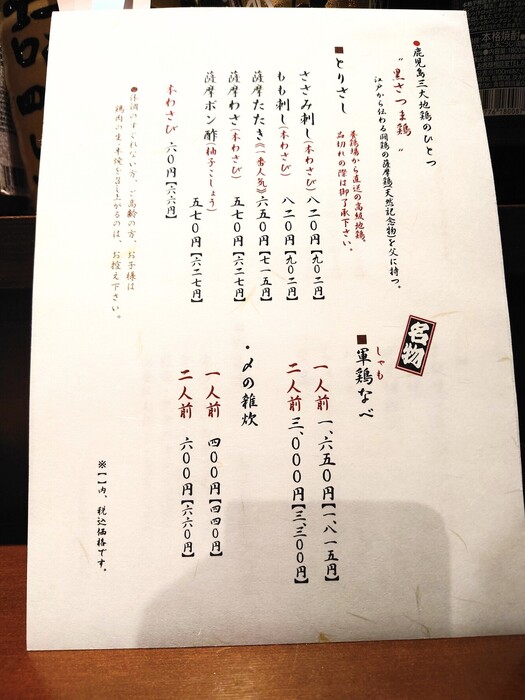 ●鹿児島三大地鶏のひとつ
"黒さつま鶏"
江戸から伝わる闘鶏の薩摩鶏(天然記念物)を父に持つ。
■とりさし
養鶏場から直送の高級地鶏。
品切れの際は御了承下さい。
ささみ刺し(本わさび) 八二〇円【九〇二円】
もも刺し(本わさび) 八二〇円【九〇二円】
薩摩たたき《一番人気》 六五〇円【七一五円】
薩摩わさ(本わさび) 五七〇円【六二七円】
薩摩ポン酢(柚子こしょう) 五七〇円【六二七円】
本わさび 六〇円【六六円】
●体調のすぐれない方、ご高齢の方、お子様は
鶏肉の生・半焼を召し上がるのは、お控え下さい。
名物
しゃも
■軍鶏なべ
一人前 一、六五〇円【一、八一五円】
二人前 三、〇〇〇円【三、三〇〇円】
・〆の雑炊
一人前 四〇〇円【四四〇円】
二人前 六〇〇円【六六〇円】
※【】内、税込価格です。
本格焼酎